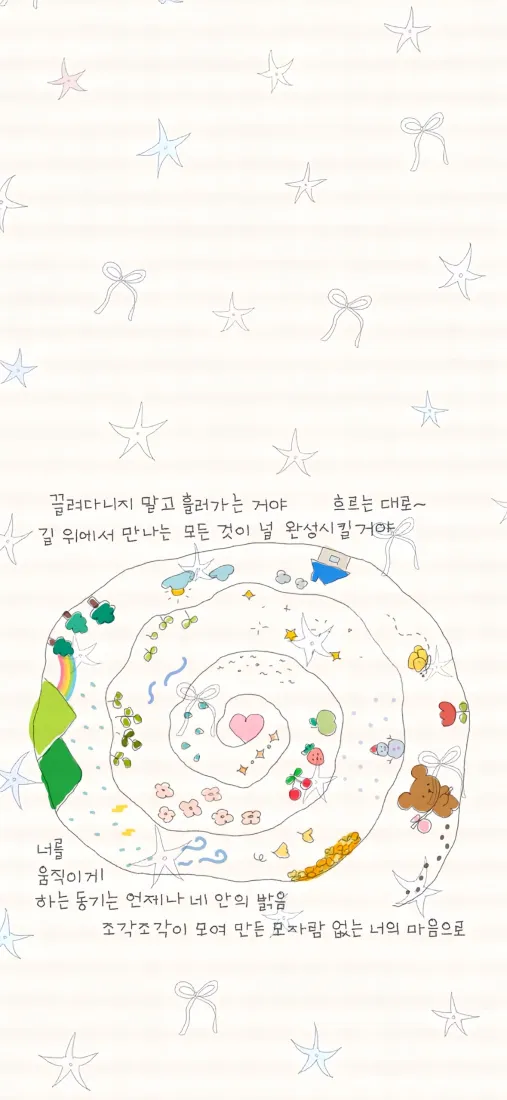 끌려다니지 말고 흘러가는 거야 흐르는 대로~
길 위에서 만나는 모든 것이 널 완성시킬거야
너를
움직이게
하는 동기는 언제나 네 안의 밝음
조각조각이 모여 만든 모자람 없는 너의 마음으로